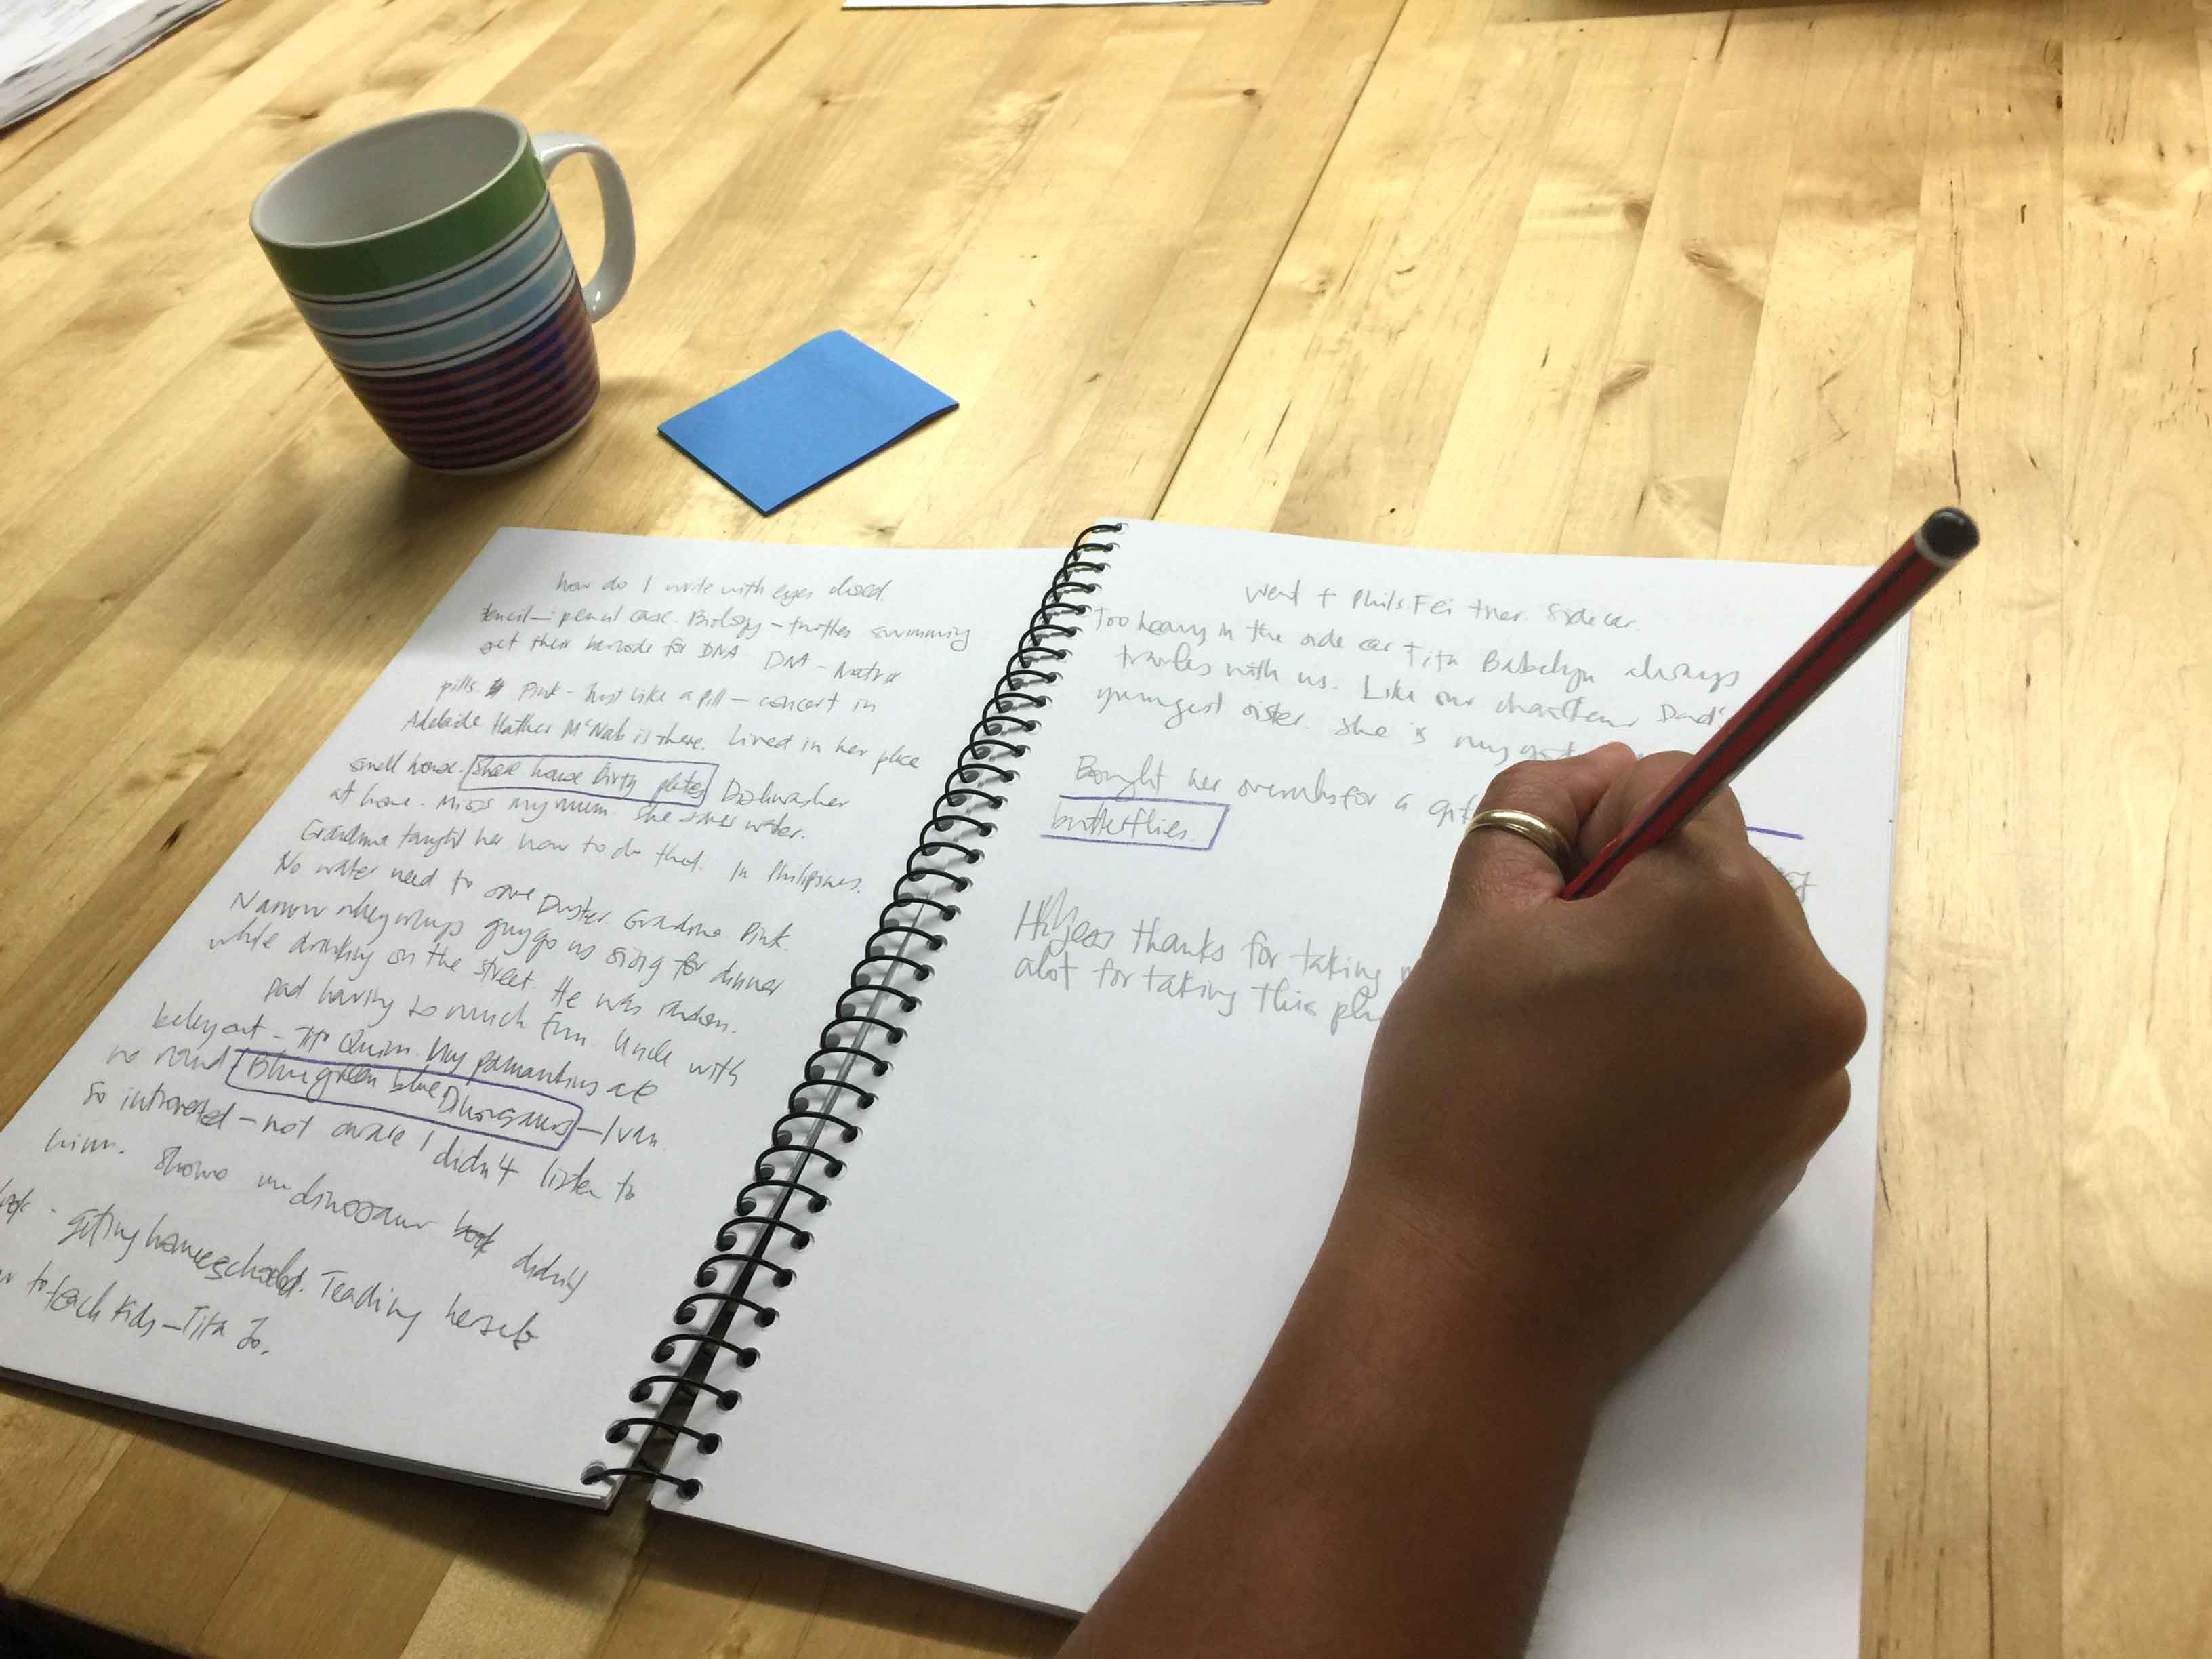 how do I write with eyes closed.
pencil - pencil case. Biology - turtles swimming
get their barcode for DNA DNA - Matrix
pills. Pink - Just like a pill - concert in
Adelaide Heather McNab is there. Lived in her place
small house. Share house Dirty plates Dishwasher
at home. Miss my mum. She saves water.
Grandma taught her how to do that. In Philipines.
No water need to save Duster. Grandma Pink.
Narrow guy go us for dinner
while drinking on the street. He was random.
Dad having so much fun. Uncle with
belly out - Tito Quim. My
no Blue green blue Dinosaurs - Ivan
so intrested - not I didn't listen to
him. Shows me dinosaur book didn't
- getting homeeschooled. Teading herself
to teach kids - Tita Jo.
went + Phils Sidecar.
Too heavy in the side car Tita always
with us. Like our Dad's
youngest sister. She is my
Bought her for a
butterflies.
thanks for taking
alot for taking this